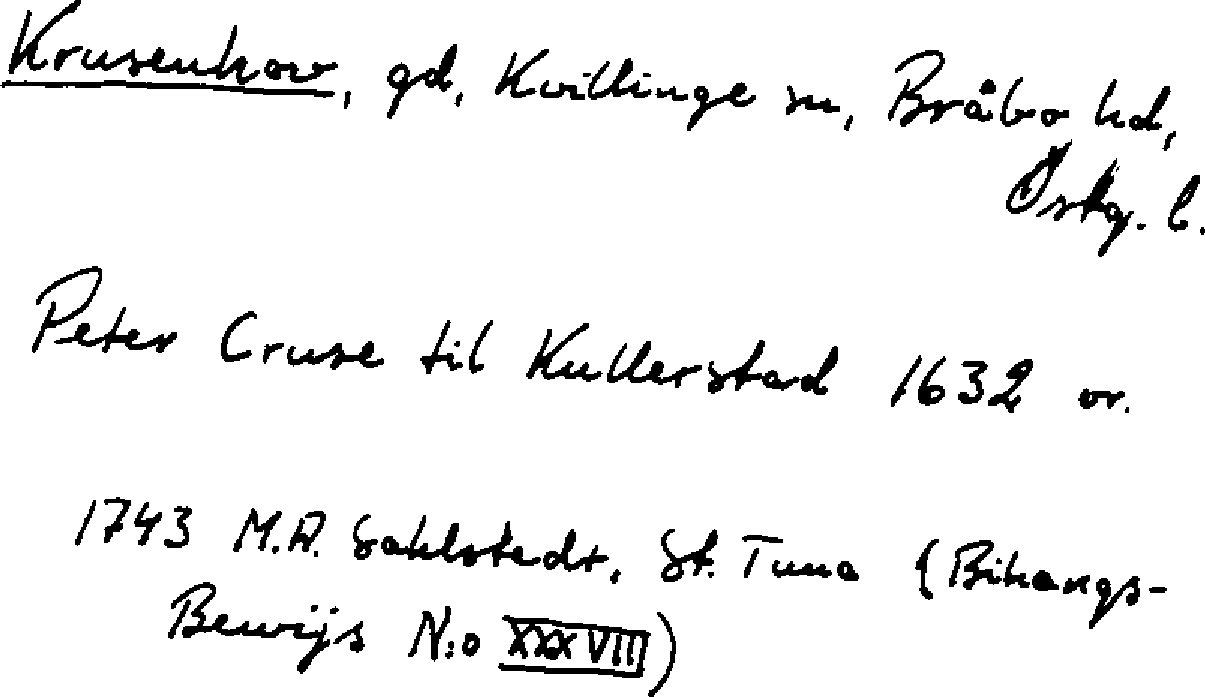 Krusenhov, gd, Kvillinge sn, Bråbo hd,
Östg. l.
Peter Cruse til Kullerstad 1632 or.
1743 M.A. Sahlstedt, St. Tuna (Bihangs-
Bewijs N:o XXXVIII)